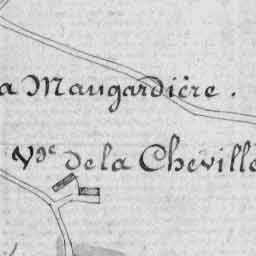 a Maugardière.
Vge de la Chevillé